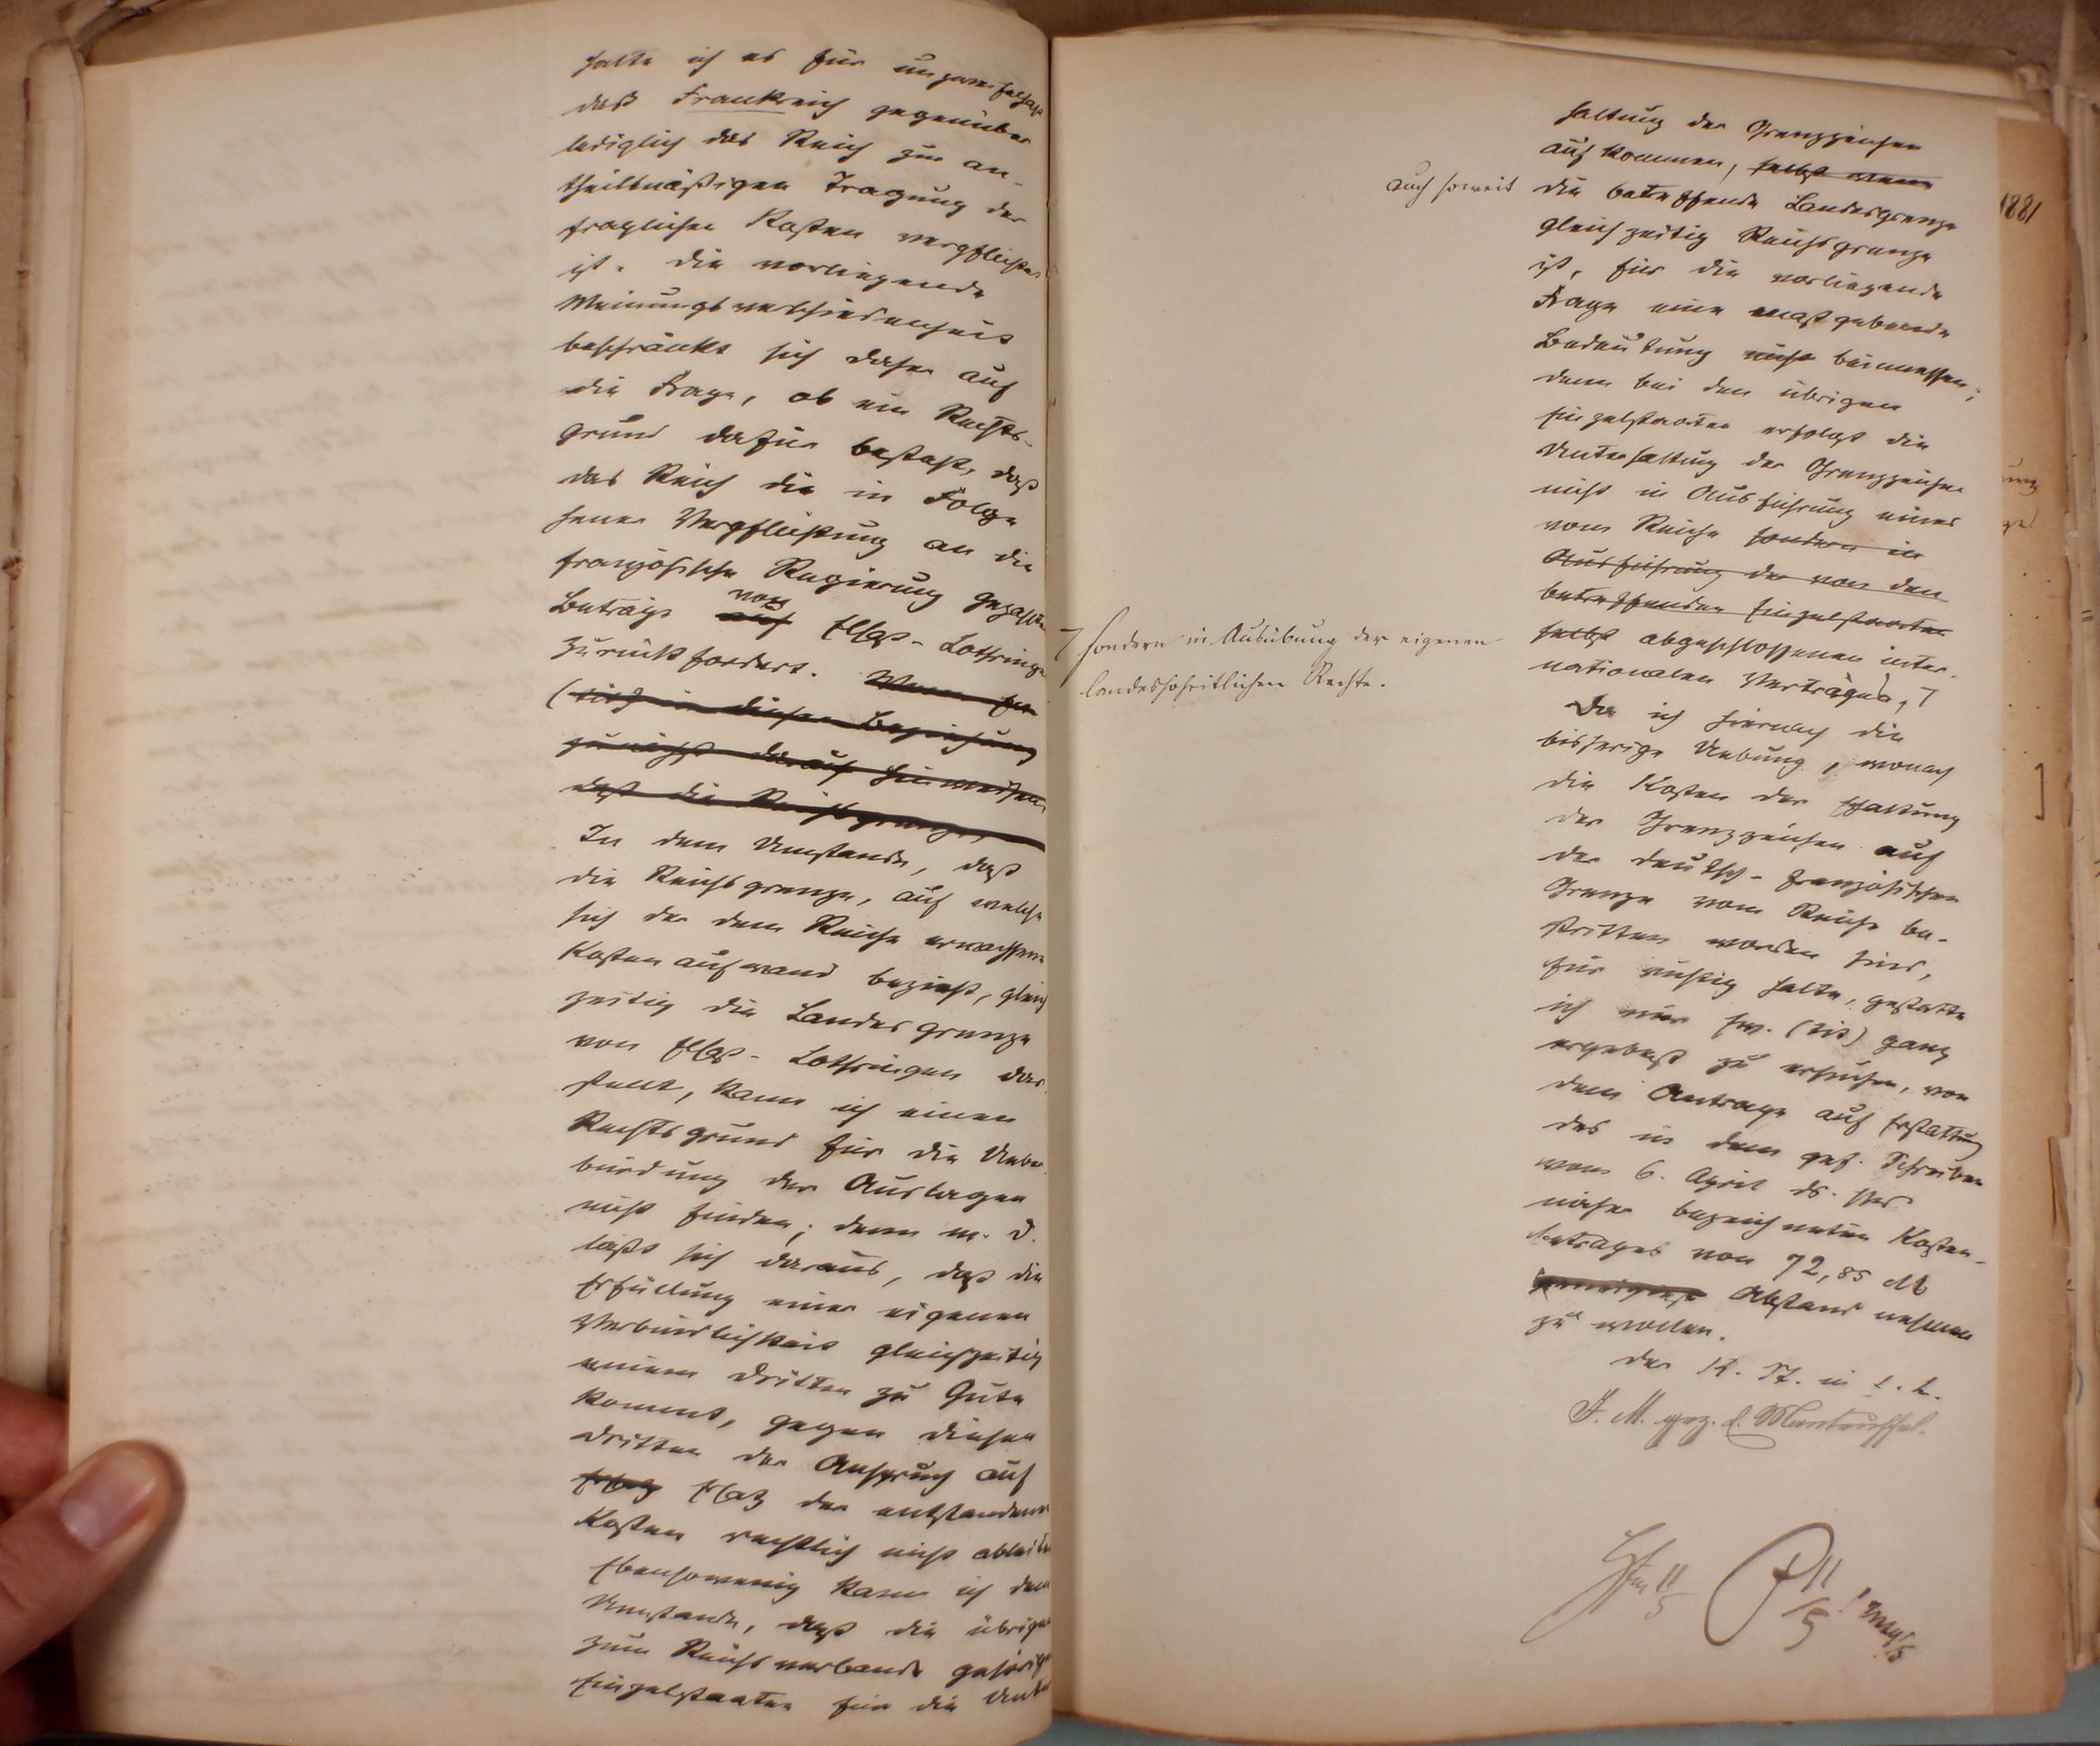 halte ich es für unzweifelhaft
daß Frankreich gegenüber
lediglich das Reich zur an-
theilmäßigen Tragung der
fraglichen Kosten verpflichtet
ist. Die vorliegende
Meinungsverschiedenheit
beschränkt sich daher auf
die Frage, ob ein Rechts-
grund dafür besteht, daß
das Reich die in Folge
jener Verpflichtung an die
französische Regierung gezahlten
Beträge auf von Elsaß-Lothringen
zurückfordert. Wenn Ew
(tit) in dieser Beziehung
zunächst darauf hinweisen,
daß die Reichsgrenze,
In dem Umstande, daß
die Reichsgrenze, auf welche
sich der dem Reiche erwachsene
Kostenaufwand bezieht, gleich
zeitig die Landesgrenze
von Elsaß-Lothringen dar
stellt, kann ich einen
Rechtsgrund für die Ueber
bürdung der Auslagen
nicht finden; denn m. D.
läßt sich daraus, daß die
Erfüllung einer eigenen
Verbindlichkeit gleichzeitig
einem Dritten zu Gute
kommt, gegen diesen
Dritten der Anspruch auf
Ersatz Ersatz der entstandenen
Kosten rechtlich nicht ableiten
Ebensowenig kann ich dem
Umstande, daß die übrigen
zum Reichsverbande gehörigen
Einzelstaaten für die Unter
1881
haltung der Grenzzeichen
aufkommen, selbst wenn
auch soweit die betreffende Landesgrenze
gleichzeitig Reichsgrenze
ist, für die vorliegende
Frage eine maßgebende
Bedeutung nicht beimessen;
denn bei den übrigen
Einzelstaaten erfolgt die
Unterhaltung der Grenzzeichen
nicht in Ausführung eines
vom Reiche sondern in
Ausführung der von den
betreffenden Einzelstaaten
selbst abgeschlossenen inter-
nationalen Vertrages,
sondern in Ausübung der eigenen
landeshoheitlichen Rechte.
Da ich hiernach die
bisherige Uebung, wonach
die Kosten der Erhaltung
der Grenzzeichen auf
der deutsch-französischen
Grenze vom Reiche be-
stritten worden sind,
für richtig halte, gestatte
ich mir Ew. (tit) ganz
ergebenst zu ersuchen, von
dem Antrage auf Erstattung
des in dem gef. Schreiben
vom 6. April ds. Jhrs
näher bezeichneten Kosten-
betrages von 72,85 M
Abstand nehmen
zu wollen.
Der K. St. in E. L.
F. M. gez. v. Manteuffel.
11/5
11/5